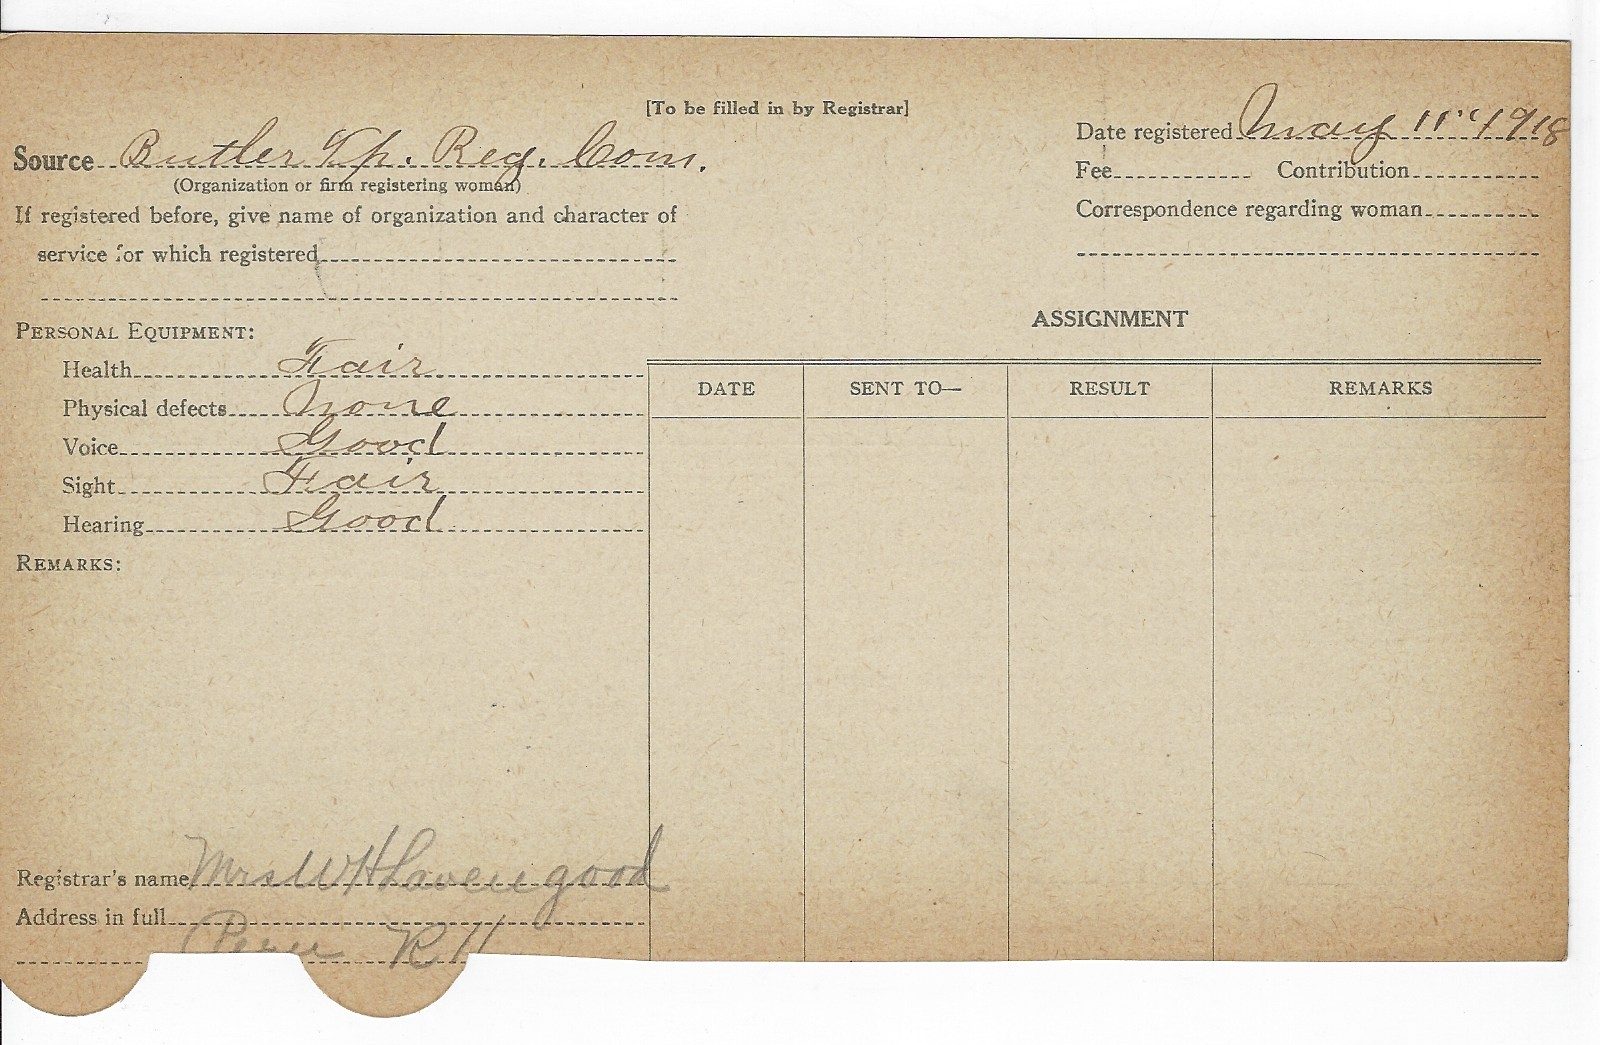 [To be filled in by Registrar]
Date registered May 11" 1918
Source Butler Tp. Reg. Com.
(Organization or firm registering woman)
Fee Contribution
If registered before, give name of organization and character of
service for which registered
Correspondence regarding woman
ASSIGNMENT
PERSONAL EQUIPMENT:
Health Fair
Physical defects None
Voice Good
Sight Fair
Hearing Good
DATE SENT TO— RESULT REMARKS
REMARKS:
Registrar's name Mrs W H Lavengood
Address in full
Peru R 11